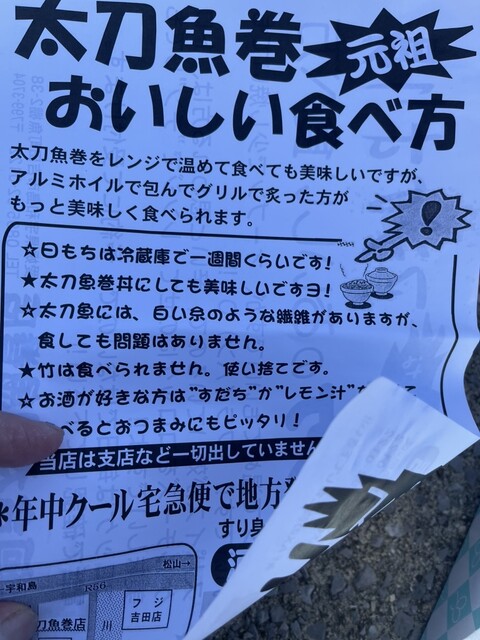 太刀魚巻
元祖
おいしい食べ方
太刀魚巻をレンジで温めて食べても美味しいですが、
アルミホイルで包んでグリルで炙った方が
もっと美味しく食べられます。
!
☆日もちは冷蔵庫で一週間くらいです!
★太刀魚巻丼にしても美味しいですヨ!
☆太刀魚には、白い糸のような繊維がありますが、
食しても問題はありません。
★竹は食べられません。使い捨てです。
☆お酒が好きな方は"すだち"か"レモン汁"
べるとおつまみにもピッタリ!
当店は支店など一切出していません
*年中クール宅急便で地方
すり身
松山→
宇和島
R56
フジ
吉田店
刀魚巻店
川